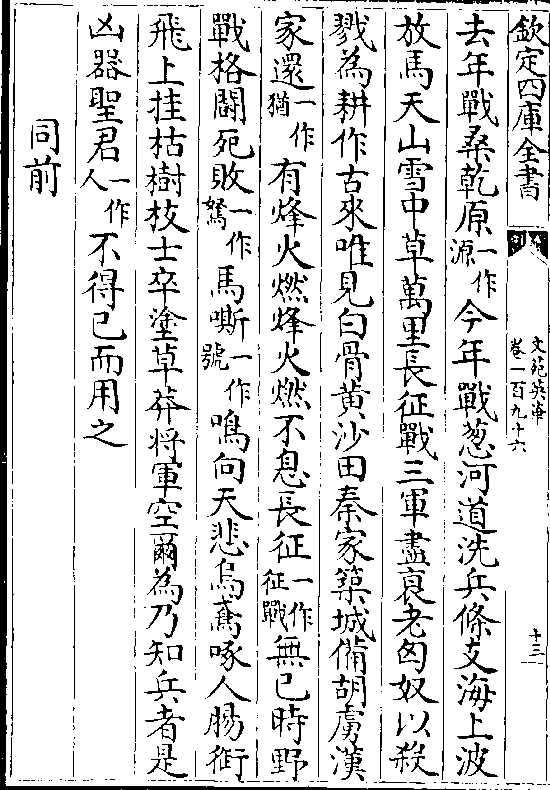 欽定四庫全書
文苑英華
卷一百九十六
十三
去年戰桑乾原一作源今年戰葱河道洗兵條支海上波
放馬天山雪中草萬里長征戰三軍盡衰老匈奴以殺
戮為耕作古來唯見白骨黄沙田秦家築城備胡虜漢
家還一作猶有烽火燃烽火燃不息長征一作征戰無已時野
戰格鬬死敗一作駑馬嘶一作號鳴向天悲烏鳶啄人腸銜
飛上挂枯樹枝士卒塗草莽将軍空爾為乃知兵者是
凶器聖君一作人不得已而用之
同前